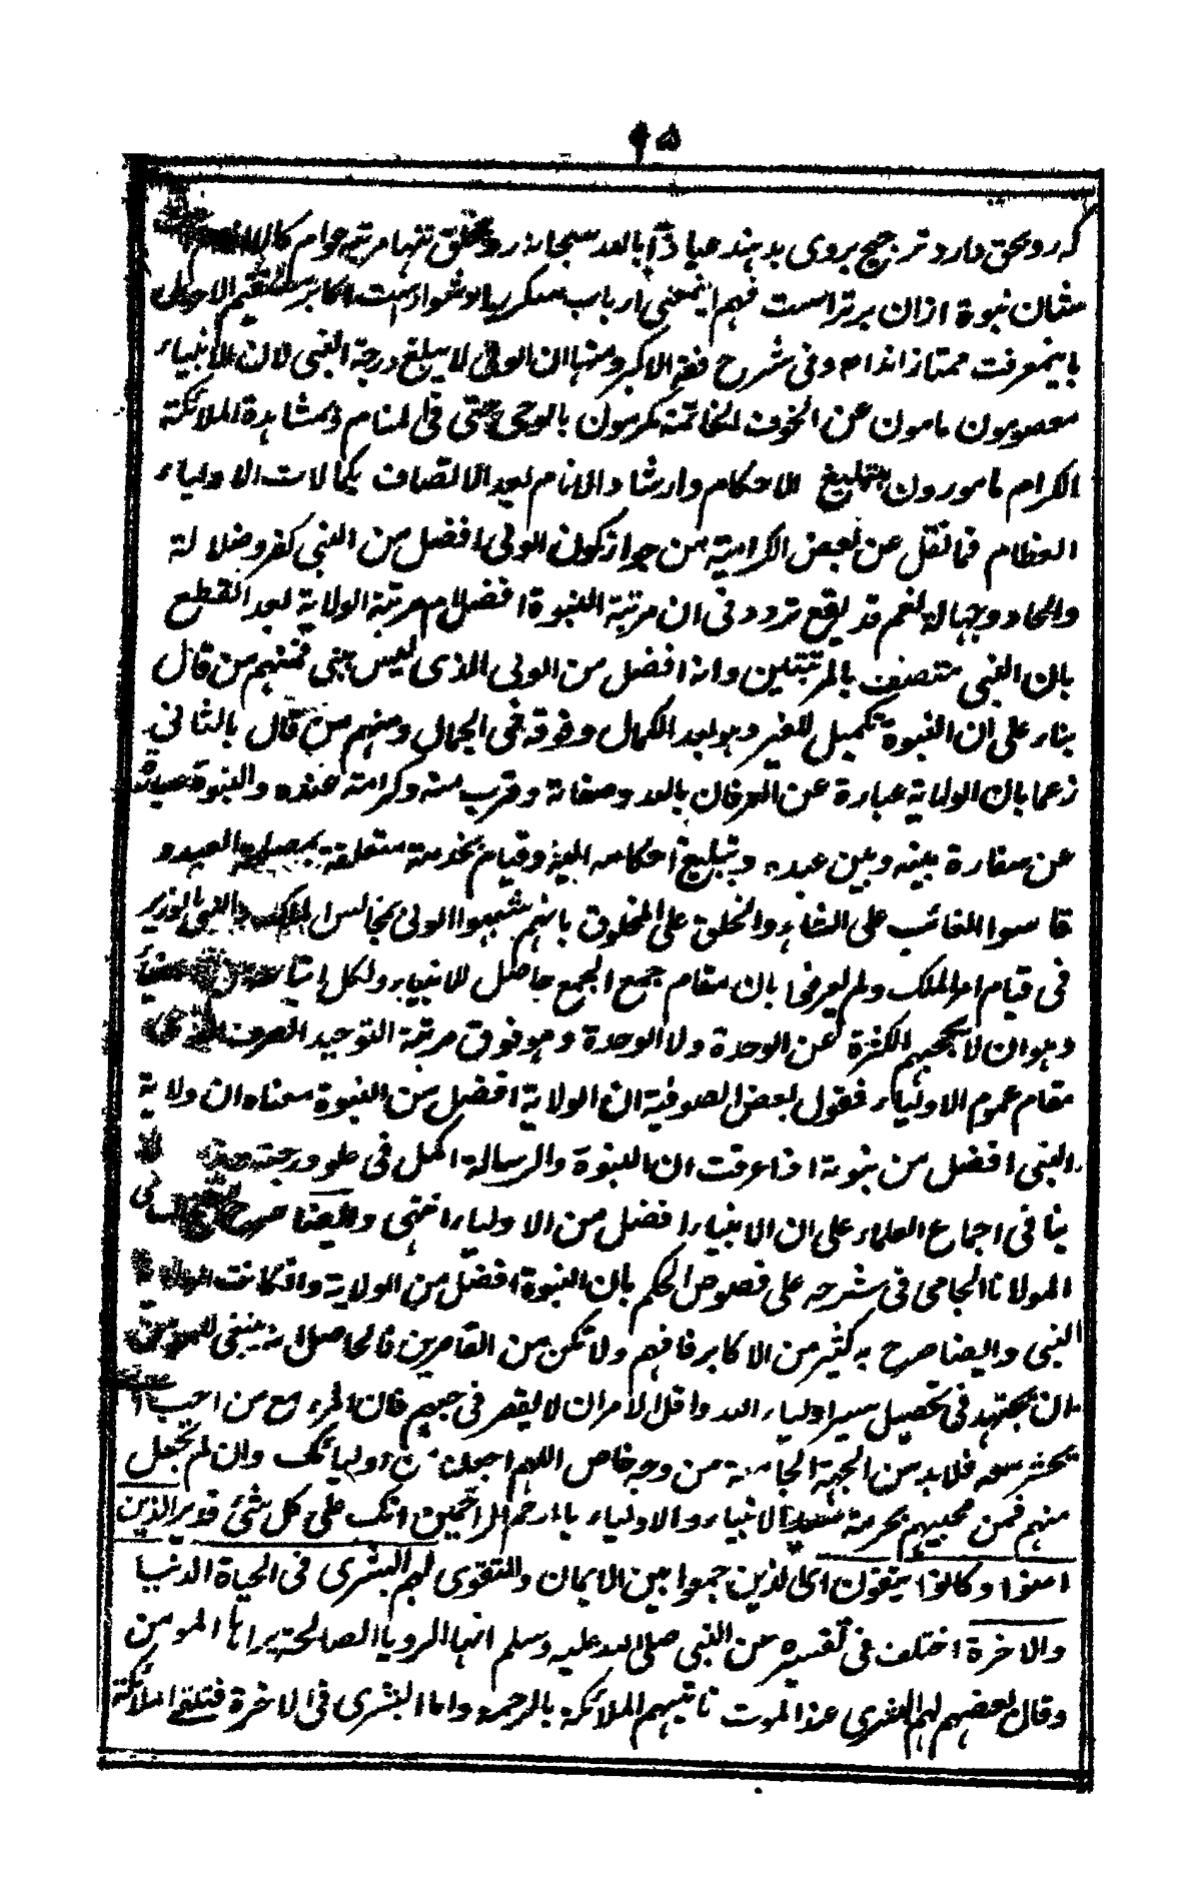 ۹۵
که رو بحق دارد ترجیح بر وی بدهند عیاذاً بالله سبحانه رو بخلق تنها مرتبه عوام کالانعام
شان نبوة ازان برتر است فهم اینمعنی ارباب سکر را دشوار است اکابر مستقیم الاحوال
باینمعرفت ممتاز اند ام وفی شرح فقه الاکبر ومنها ان الولی لا یبلغ درجة النبی لان الانبیاء
معصومون مامون عن الخوف الخاتمة مکرمون بالوحی حتی فی المنام وبمشاهدة الملائکة
الکرام مامورون بتبلیغ الاحکام وارشاد الانام بعد الاتصاف بکمالات الاولیاء
العظام فما نقل عن بعض الکرامیة من جواز کون الولی افضل من النبی کفر وضلالة
والحاد وجهالة نعم قد یقع تردد فی ان مرتبة النبوة افضل ام مرتبة الولایة بعد القطع
بان النبی متصف بالمرتبتین وانه افضل من الولی الذی لیس بنبی فمنهم من قال
بناء علی ان النبوة تکمیل للغیر وهو بعد الکمال وفوقه فی الجمال ومنهم من قال بالثانی
زعما بان الولایة عبارة عن العرفان بالله وصفاته وقرب منه وکرامة عنده والنبوة عبارة
عن سفارة بینه وبین عبده وتبلیغ احکامه الیه وقیام بخدمة متعلقة بمصلحة العبد و
قاسوا الغائب علی الشاهد والخلق علی المخلوق بانهم شبهوا الولی بمجالس الملک والنبی بالوزیر
فی قیام امر الملک ولم یعرفوا بان مقام جمع الجمع حاصل للانبیاء ولکمل
وهو ان لا تحجبهم الکثرة عن الوحدة ولا الوحدة وهو فوق مرتبة التوحید الصرف الذی
مقام عموم الاولیاء فقول بعض الصوفیة ان الولایة افضل من النبوة معناه ان ولایة
النبی افضل من نبوته اذا عرفت ان النبوة والرسالة اکمل فی علو درجته
ینافی اجماع العلماء علی ان الانبیاء افضل من الاولیاء انتهی وایضا صرح
المولانا الجامی فی شرحه علی فصوص الحکم بان النبوة افضل من الولایة وان کانت
النبی وایضا صرح به کثیر من الاکابر فافهم ولا تکن من القاصرین فالحاصل انه ینبغی للمومن
ان یجتهد فی تحصیل سیر اولیاء الله واقل الامر ان لا یقصر فی حبهم فان المرء مع من احب
یحشر معه فلا بد من الجهة الجامعة من وجه خاص اللهم اجعلنا من اولیائک وان لم تجعل
منهم فمن محبیهم بحرمة سید الانبیاء والاولیاء یا ارحم الراحمین انک علی کل شئ قدیر الذین
امنوا وکانوا یتقون ای الذین جمعوا بین الایمان والتقوی لهم البشری فی الحیاة الدنیا
والاخرة اختلف فی تفسیره عن النبی صلی الله علیه وسلم انها الرویا الصالحة یراها المومن
وقال بعضهم لهم البشری عند الموت تاتیهم الملائکة بالرحمة واما البشری فی الاخرة فتلقی الملائکة